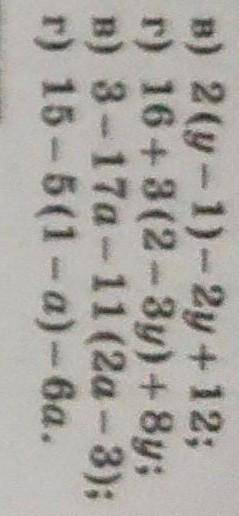 в) 2(y − 1) − 2y + 12;
г) 16 + 3(2 − 3y) + 8y;
в) 3 − 17a − 11(2a − 3);
г) 15 − 5(1 − a) − 6a.